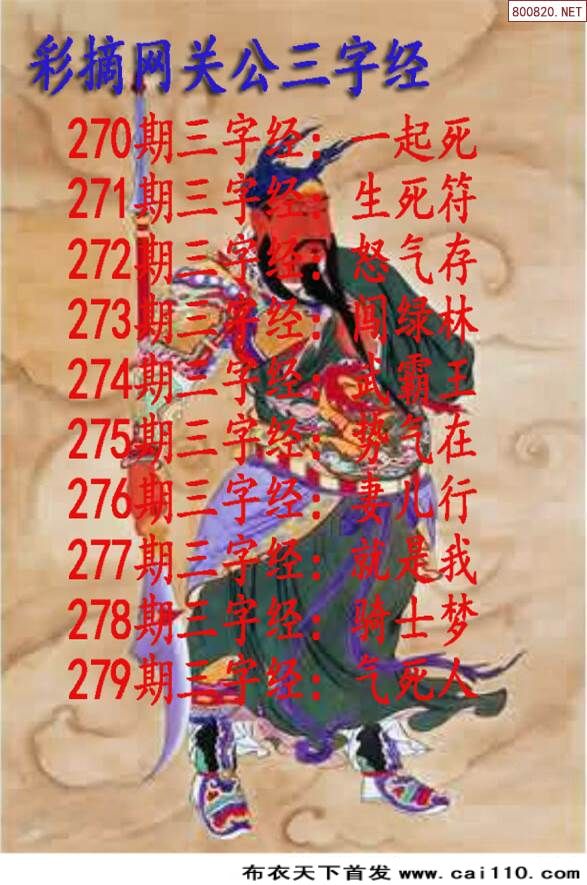 800820.NET
彩摘网关公三字经
270期三字经：一起死
271期三字经：生死符
272期三字经：怒气存
273期三字经：闯绿林
274期三字经：武霸王
275期三字经：势气在
276期三字经：妻儿行
277期三字经：就是我
278期三字经：骑士梦
279期三字经：气死人
布衣天下首发 www.cai110.com